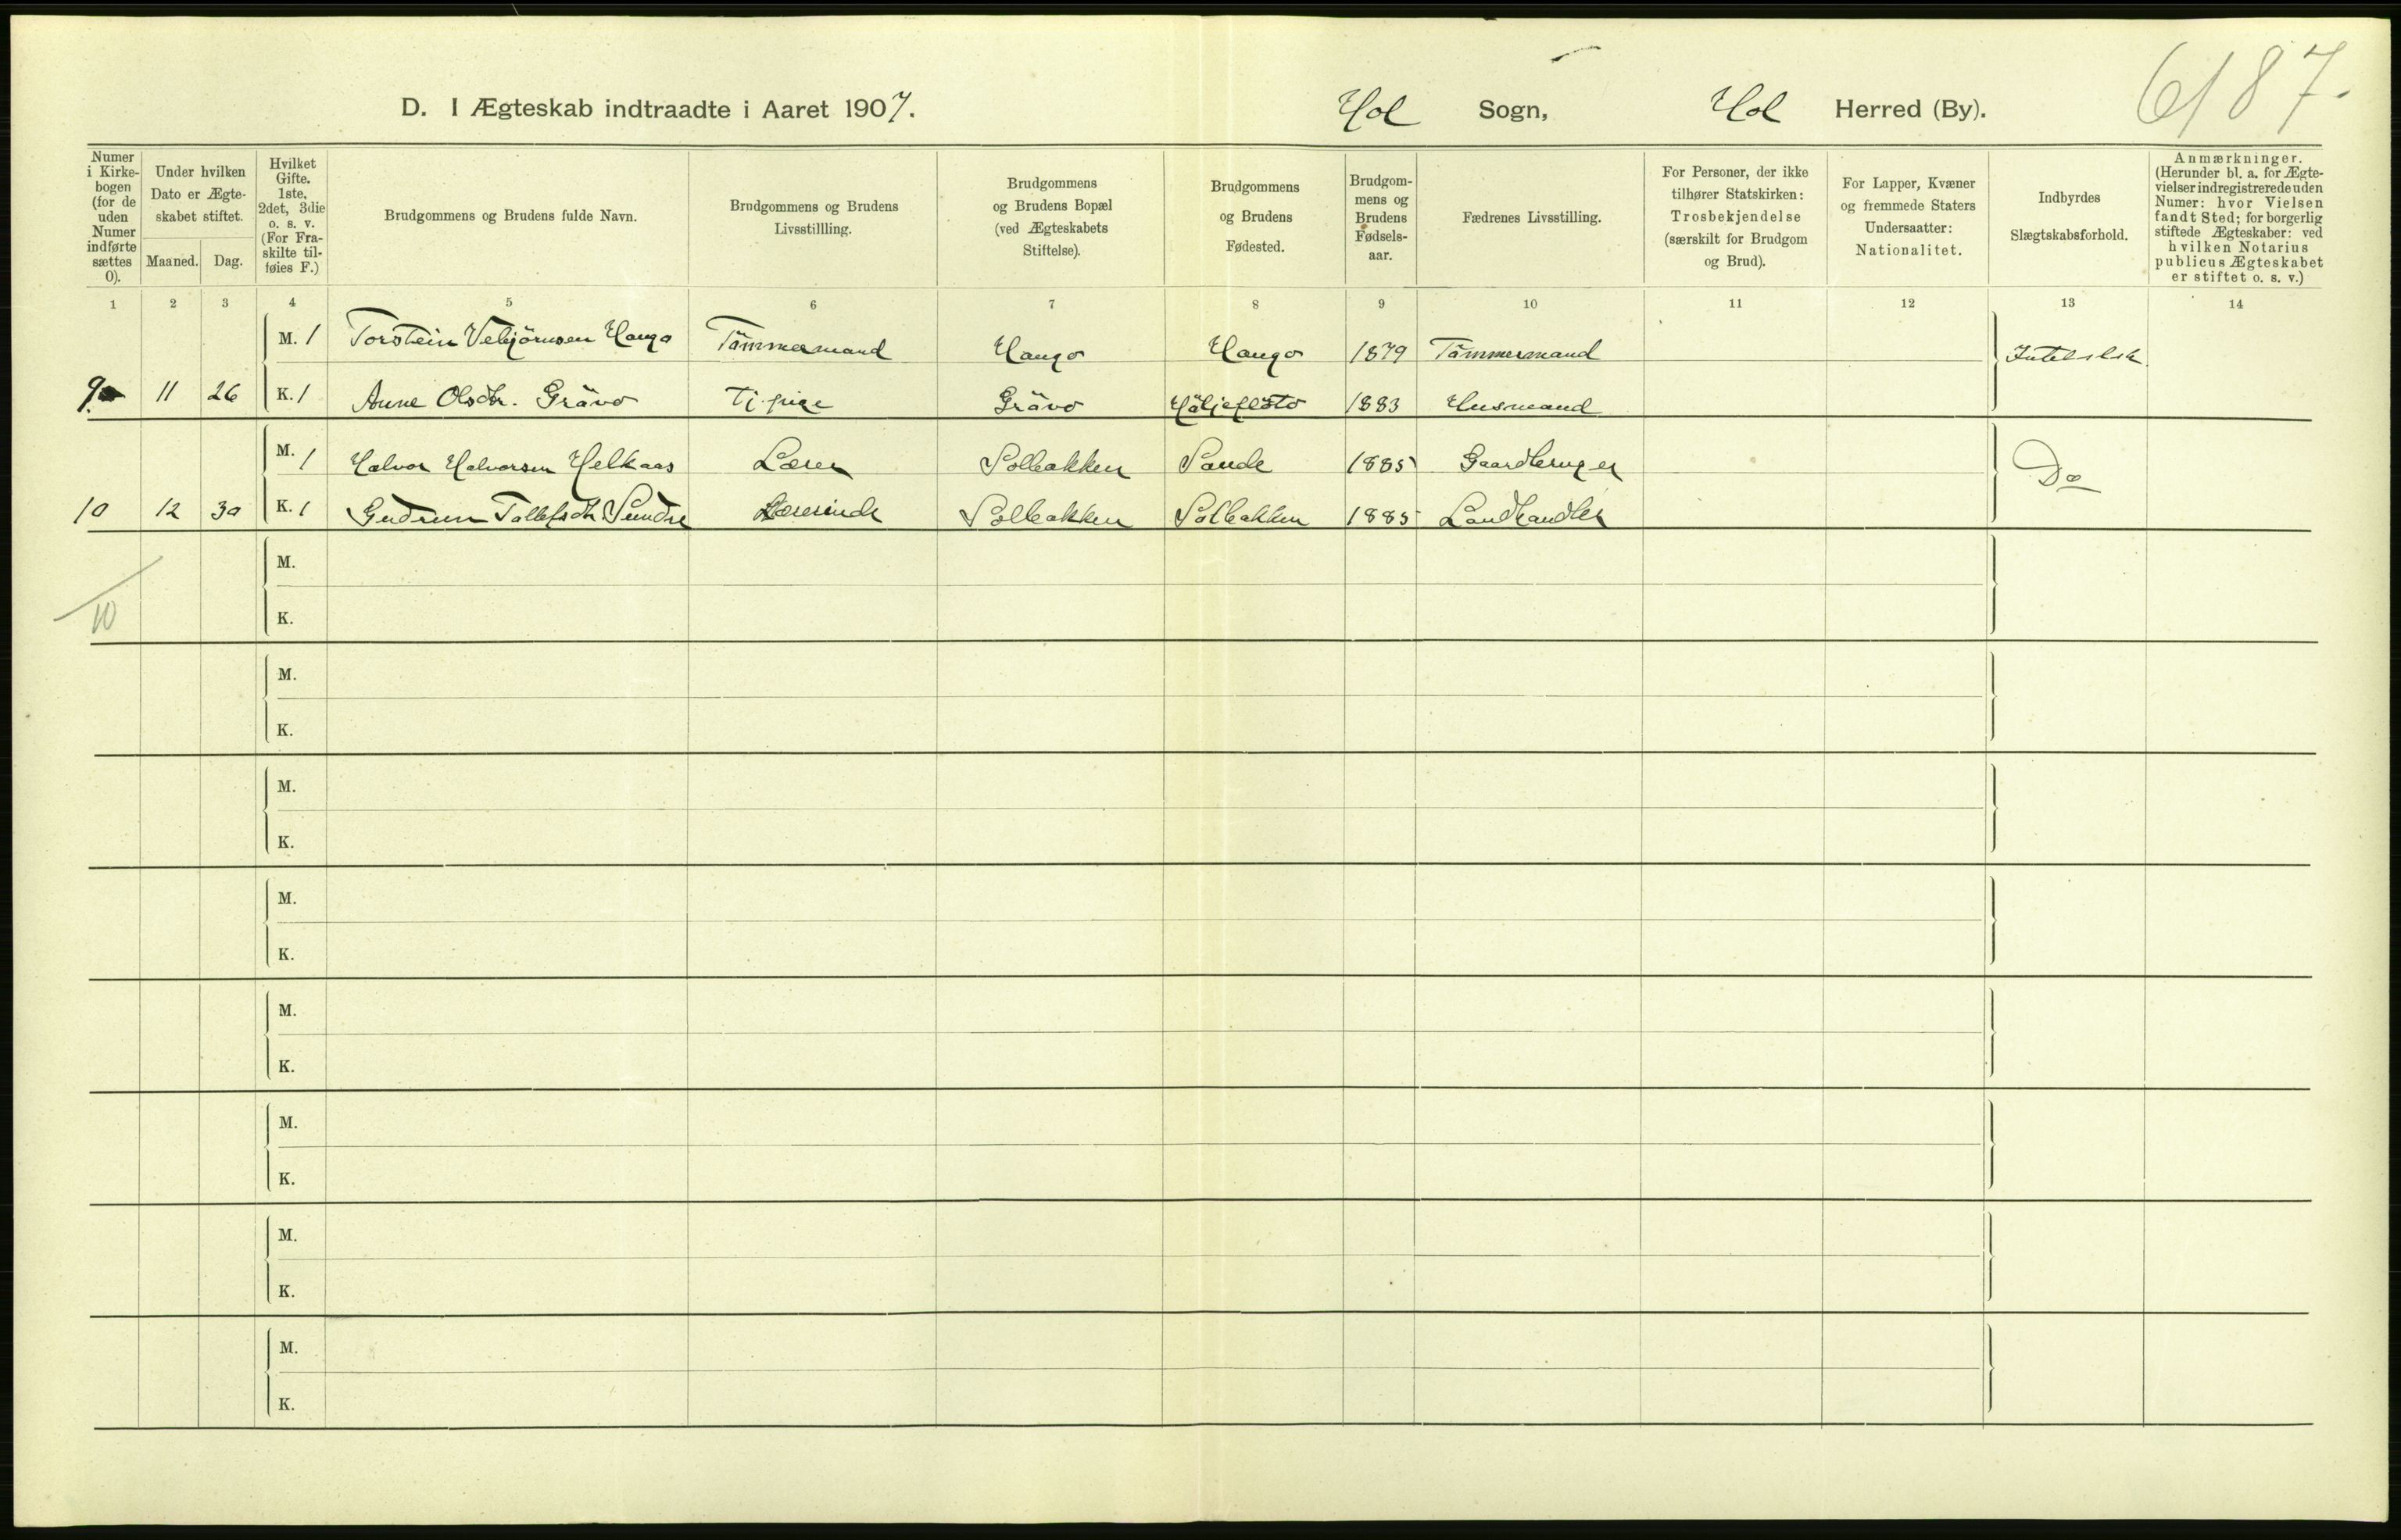 6187.
D. I Ægteskab indtraadte i Aaret 1907. Hol Sogn, Hol Herred (By).
Numer i Kirkebogen (for de uden Numer indførte sættes 0).
Under hvilken Dato er Ægteskabet stiftet.
Maaned. Dag.
Hvilket Gifte. 1ste, 2det, 3die o. s. v. (For Fraskilte tilføies F.)
Brudgommens og Brudens fulde Navn.
Brudgommens og Brudens Livsstillling.
Brudgommens og Brudens Bopæl (ved Ægteskabets Stiftelse).
Brudgommens og Brudens Fødested.
Brudgommens og Brudens Fødselsaar.
Fædrenes Livsstilling.
For Personer, der ikke tilhører Statskirken: Trosbekjendelse (særskilt for Brudgom og Brud).
For Lapper, Kvæner og fremmede Staters Undersaatter: Nationalitet.
Indbyrdes Slægtskabsforhold.
Anmærkninger. (Herunder bl. a. for Ægtevielser indregistrerede uden Numer: hvor Vielsen fandt Sted; for borgerlig stiftede Ægteskaber: ved hvilken Notarius publicus Ægteskabet er stiftet o. s. v.)
1 2 3 4 5 6 7 8 9 10 11 12 13 14
M. 1 Torstein Vebjörnsen Haugo Tömmermand Haugo Haugo 1879 Tömmermand
9 11 26 K. 1 Anne Olsdtr. Grävo Tj. pige Grävo 1883 Husmand
M. 1 Halvor Halvorsen Helkaas Lærer Solbakken Sande 1885 Gaardbruger Do
10 12 30 K. 1 Gudrun Tollefsdtr Sundre Lærerinde Solbakken Solbakken 1885 Landhandler
M.
10
K.
M.
K.
M.
K.
M.
K.
M.
K.
M.
K.
M.
K.
M.
K.